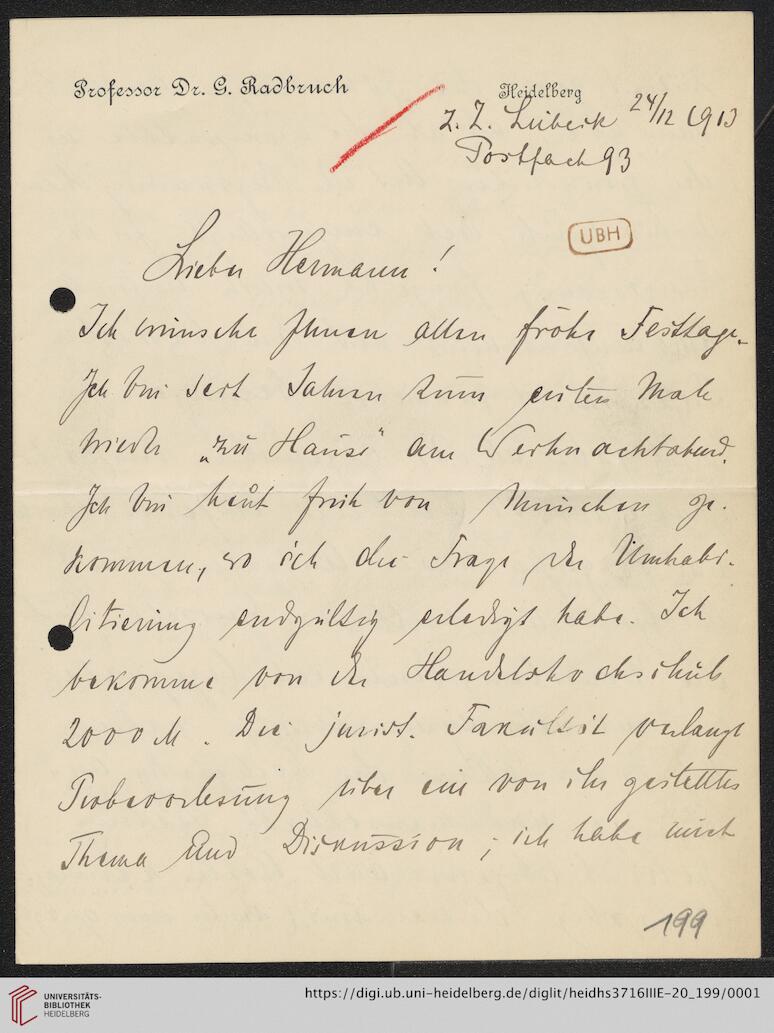 Professor Dr. G. Radbruch
Heidelberg
z. Z. Lübeck 24/12 1913
Postfach 93
UBH
Lieber Hermann!
Ich wünsche Ihnen allen frohe Festtage.
Ich bin seit Jahren zum ersten Male
wieder „zu Hause" am Weihnachtabend.
Ich bin heut früh von München ge-
kommen, wo ich die Frage der Umhabi-
litierung endgültig erledigt habe. Ich
bekomme von der Handelshochschule
2000 M. Die jurist. Fakultät verlangt
Probevorlesung über ein von ihr gestelltes
Thema und Diskussion; ich habe mich
199
UNIVERSITÄTS-
BIBLIOTHEK
HEIDELBERG
https://digi.ub.uni-heidelberg.de/diglit/heidhs3716IIIE-20_199/0001